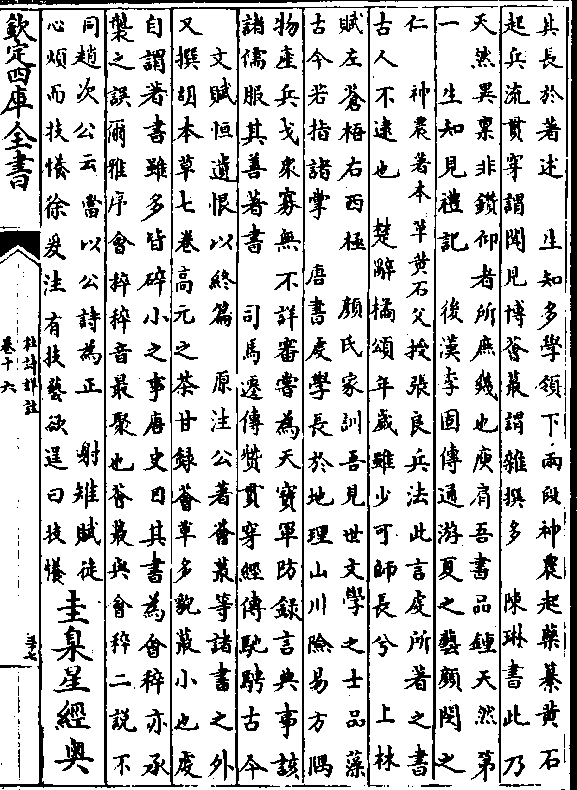 其長於著述　生知多學領下兩段神農起藥纂黃石
起兵流貫穿謂聞見博薈蕞謂雜撰多　陳琳書此乃
天然異禀非鑽仰者所庶幾也庾肩吾書品鍾天然第
一　生知見禮記　後漢李固傳通游夏之藝顔閔之
仁　神農著本草黃石父授張良兵法此言虔所著之書
古人不逮也　楚辭橘頌年歲雖少可師長兮　上林
賦左蒼梧右西極　顔氏家訓吾見世文學之士品藻
古今若指諸掌　唐書虔學長於地理山川險易方隅
物產兵戈衆寡無不詳審嘗為天寶軍防錄言典事該
諸儒服其善著書　司馬遷傳贊貫穿經傳馳騁古今
文賦恒遺恨以終篇　原注公著薈蕞等諸書之外
又撰胡本草七卷高元之荼甘錄薈草多貌蕞小也虔
自謂著書雖多皆碎小之事唐史目其書為會稡亦承
襲之誤爾雅序會稡稡音最聚也薈蕞與會稡二說不
同趙次公云當以公詩為正　射雉賦徒
心煩而技懩徐爰注有技藝欲逞曰技懩圭臬星經奥
欽定四庫全書
杜詩詳註
卷十六